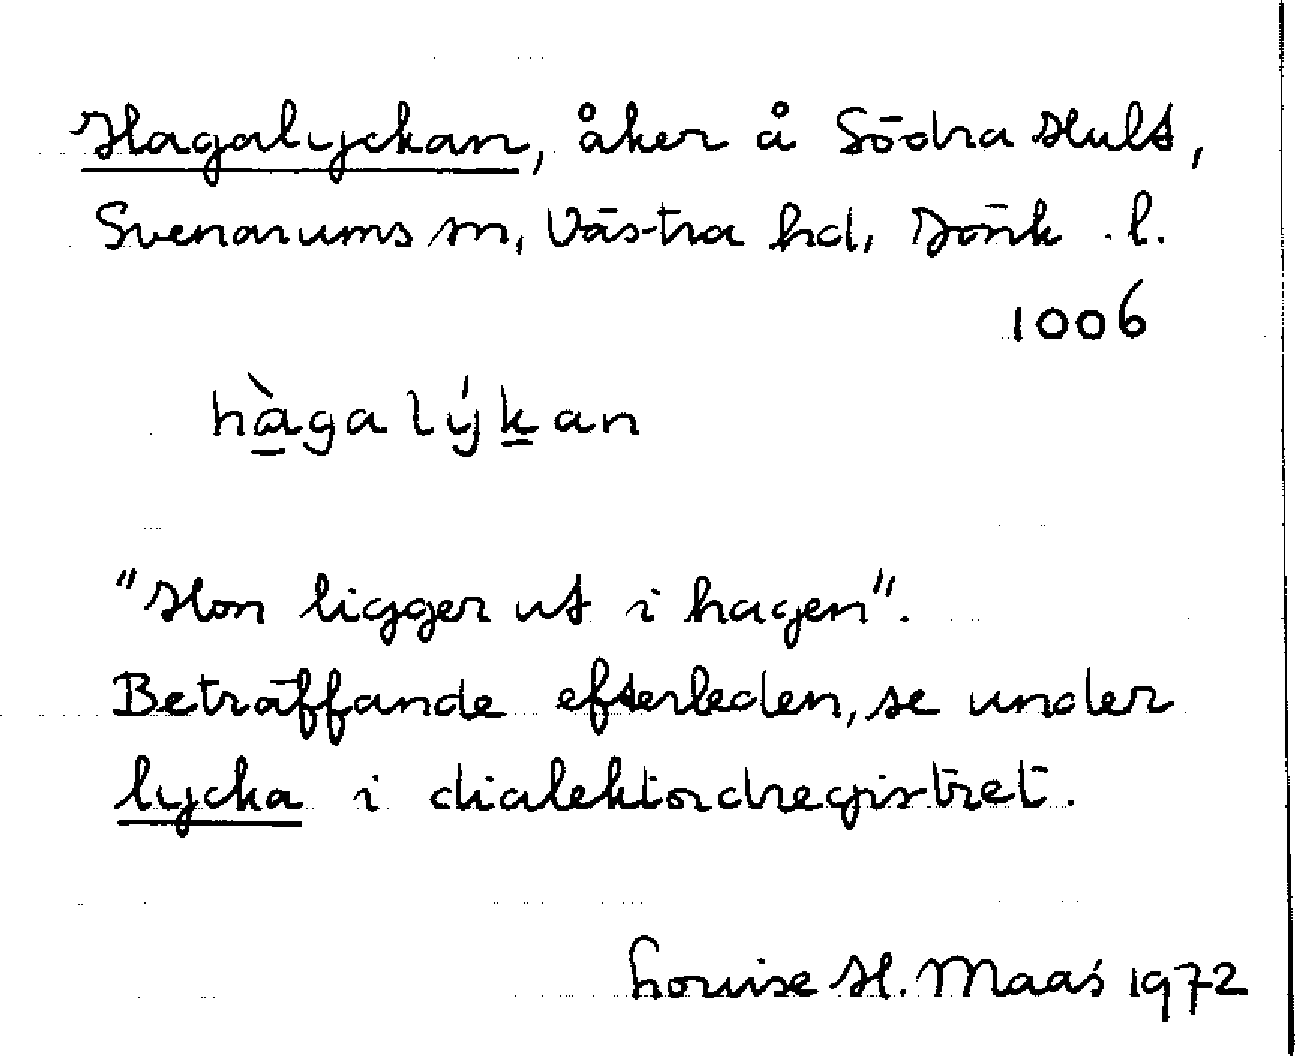 Hagalyckan, åker å Södra Hult,
Svenarums sn, Västra hd, Jönk. l.
1006
hàgalýkan
"Hon ligger ut i hagen".
Beträffande efterleden, se under
lycka i dialektordregistret.
Louise H. Maas 1972